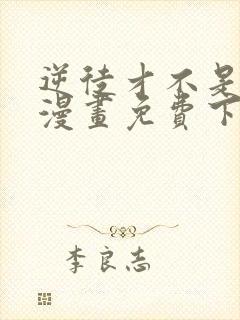 逆徒才不是
漫畫免費下
李良志